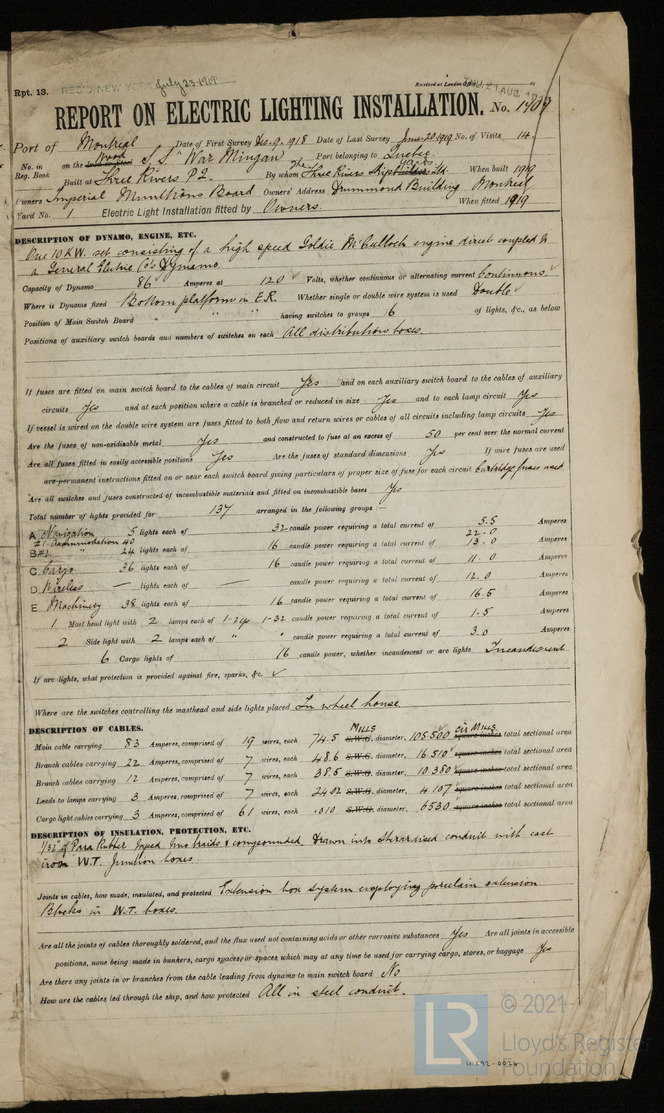 Rpt. 13. REC'D NEW YORK July 23 1919 Received at London Office THU. 21 AUG. 19
REPORT ON ELECTRIC LIGHTING INSTALLATION. No. 1409
Port of Montreal Date of First Survey Dec. 9. 1918 Date of Last Survey June 28 1919 No. of Visits 14.
No. in Reg. Book on the Wood S.S "War Mingan" Port belonging to Quebec
Built at Three Rivers P.Q. By whom The Three Rivers Shipbuilders Ltd. When built 1919
Owners Imperial Munitions Board Owners' Address Drummond Building Montreal
Yard No. 1 Electric Light Installation fitted by Owners. When fitted 1919
DESCRIPTION OF DYNAMO, ENGINE, ETC.
One 10 K.W. set consisting of a high speed Goldie McCulloch engine direct coupled to
a General Electric Co's Dynamo.
Capacity of Dynamo 86 Amperes at 120 Volts, whether continuous or alternating current Continuous.
Where is Dynamo fixed Bottom platform in E.R. Whether single or double wire system is used Double
Position of Main Switch Board " " " having switches to groups 16 of lights, &c., as below
Positions of auxiliary switch boards and numbers of switches on each All distribution boxes.
If fuses are fitted on main switch board to the cables of main circuit Yes and on each auxiliary switch board to the cables of auxiliary
circuits Yes and at each position where a cable is branched or reduced in size Yes and to each lamp circuit Yes
If vessel is wired on the double wire system are fuses fitted to both flow and return wires or cables of all circuits including lamp circuits Yes
Are the fuses of non-oxidisable metal Yes and constructed to fuse at an excess of 50 per cent over the normal current
Are all fuses fitted in easily accessible positions Yes Are the fuses of standard dimensions Yes If wire fuses are used
are permanent instructions fitted on or near each switch board giving particulars of proper size of fuse for each circuit Cartridge fuses used
Are all switches and fuses constructed of incombustible materials and fitted on incombustible bases Yes
Total number of lights provided for 137 arranged in the following groups :—
A Navigation 5 lights each of 32 candle power requiring a total current of 5.5 Amperes
#1 Accommodation 40 22.0
B #2 " 24 lights each of 16 candle power requiring a total current of 13.0 Amperes
C Cargo 36 lights each of 16 candle power requiring a total current of 11.0 Amperes
D Wireless — lights each of — candle power requiring a total current of 12.0 Amperes
E Machinery 38 lights each of 16 candle power requiring a total current of 16.5 Amperes
1 Mast head light with 2 lamps each of 1-32 candle power requiring a total current of 1.5 Amperes
2 Side light with 2 lamps each of " " candle power requiring a total current of 3.0 Amperes
6 Cargo lights of 16 candle power, whether incandescent or arc lights Incandescent
If arc lights, what protection is provided against fire, sparks, &c. ✓
Where are the switches controlling the masthead and side lights placed In wheel house
DESCRIPTION OF CABLES. MILLS CIR MILLS.
Main cable carrying 83 Amperes, comprised of 19 wires, each 74.5 S.W.G. diameter, 105500 square inches total sectional area
Branch cables carrying 22 Amperes, comprised of 7 wires, each 48.6 S.W.G. diameter, 16.510 square inches total sectional area
Branch cables carrying 12 Amperes, comprised of 7 wires, each 38.5 S.W.G. diameter, 10380 square inches total sectional area
Leads to lamps carrying 3 Amperes, comprised of 7 wires, each 24.02 S.W.G. diameter, 4.107 square inches total sectional area
Cargo light cables carrying 3 Amperes, comprised of 61 wires, each .010 S.W.G. diameter, 6530 square inches total sectional area
DESCRIPTION OF INSULATION, PROTECTION, ETC.
1/32" of Para Rubber taped two braids & compounded drawn into Sherardised conduit with cast
iron W.T. Junction boxes.
Joints in cables, how made, insulated, and protected Extension box system employing porcelain extension
Blocks in W.T. boxes.
Are all the joints of cables thoroughly soldered, and the flux used not containing acids or other corrosive substances Yes Are all joints in accessible
positions, none being made in bunkers, cargo spaces, or spaces which may at any time be used for carrying cargo, stores, or baggage Yes
Are there any joints in or branches from the cable leading from dynamo to main switch board No
How are the cables led through the ship, and how protected All in steel conduit.
LR © 2021
Lloyd's Register
Foundation
W592-0026